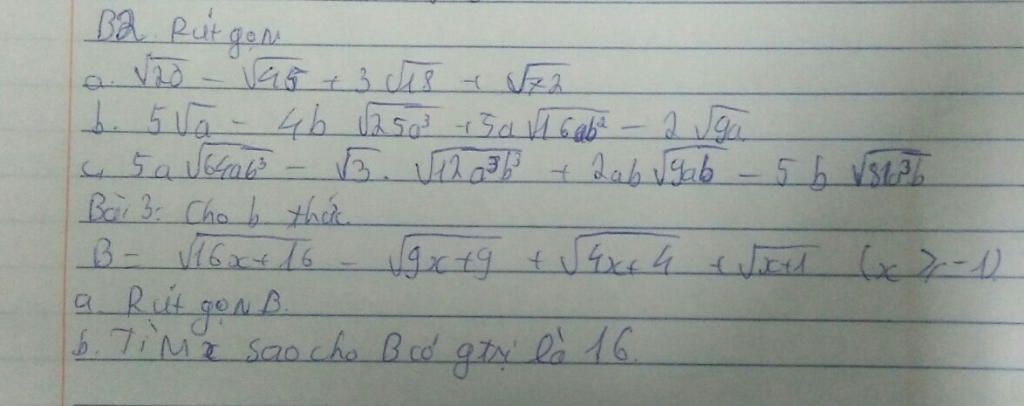 B2. Rút gọn
a. √20 − √45 + 3√18 + √72
b. 5√a − 4b √25a³ + 5a √16ab² − 2√9a
c, 5a √64ab³ − √3. √12a³b³ + 2ab √9ab − 5b √81a³b
Bài 3: Cho b thức
B = √16x+16 − √9x+9 + √4x+4 + √x+1 (x ≥ −1)
a. Rút gọn B.
b. Tìm x sao cho B có gtrị là 16.